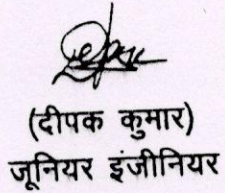 (दीपक कुमार)
जूनियर इंजीनियर